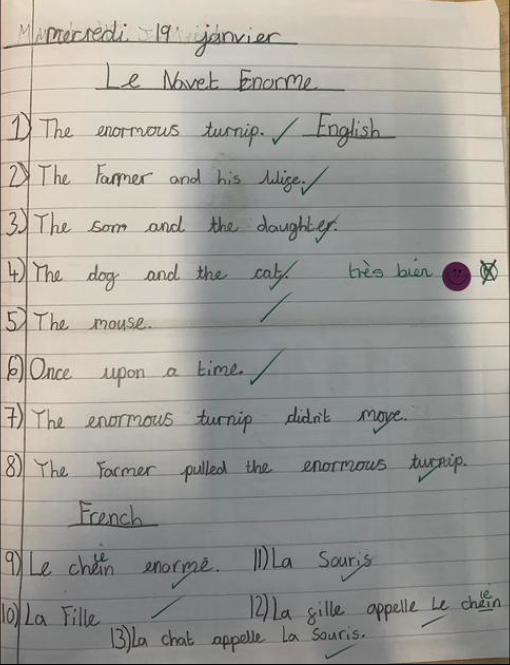 mercredi 19 janvier
Le Navet Enorme
1) The enormous turnip. English
2) The Farmer and his Wige.
3) The son and the daughter.
4) The dog and the cat. très bien
5) The mouse.
6) Once upon a time.
7) The enormous turnip didn't move.
8) The Farmer pulled the enormous turnip.
French
9) Le chein ie enormé. 11) La Souris
10) La Fille 12) La fille appelle Le chein ie
13) La chat appelle La Souris.